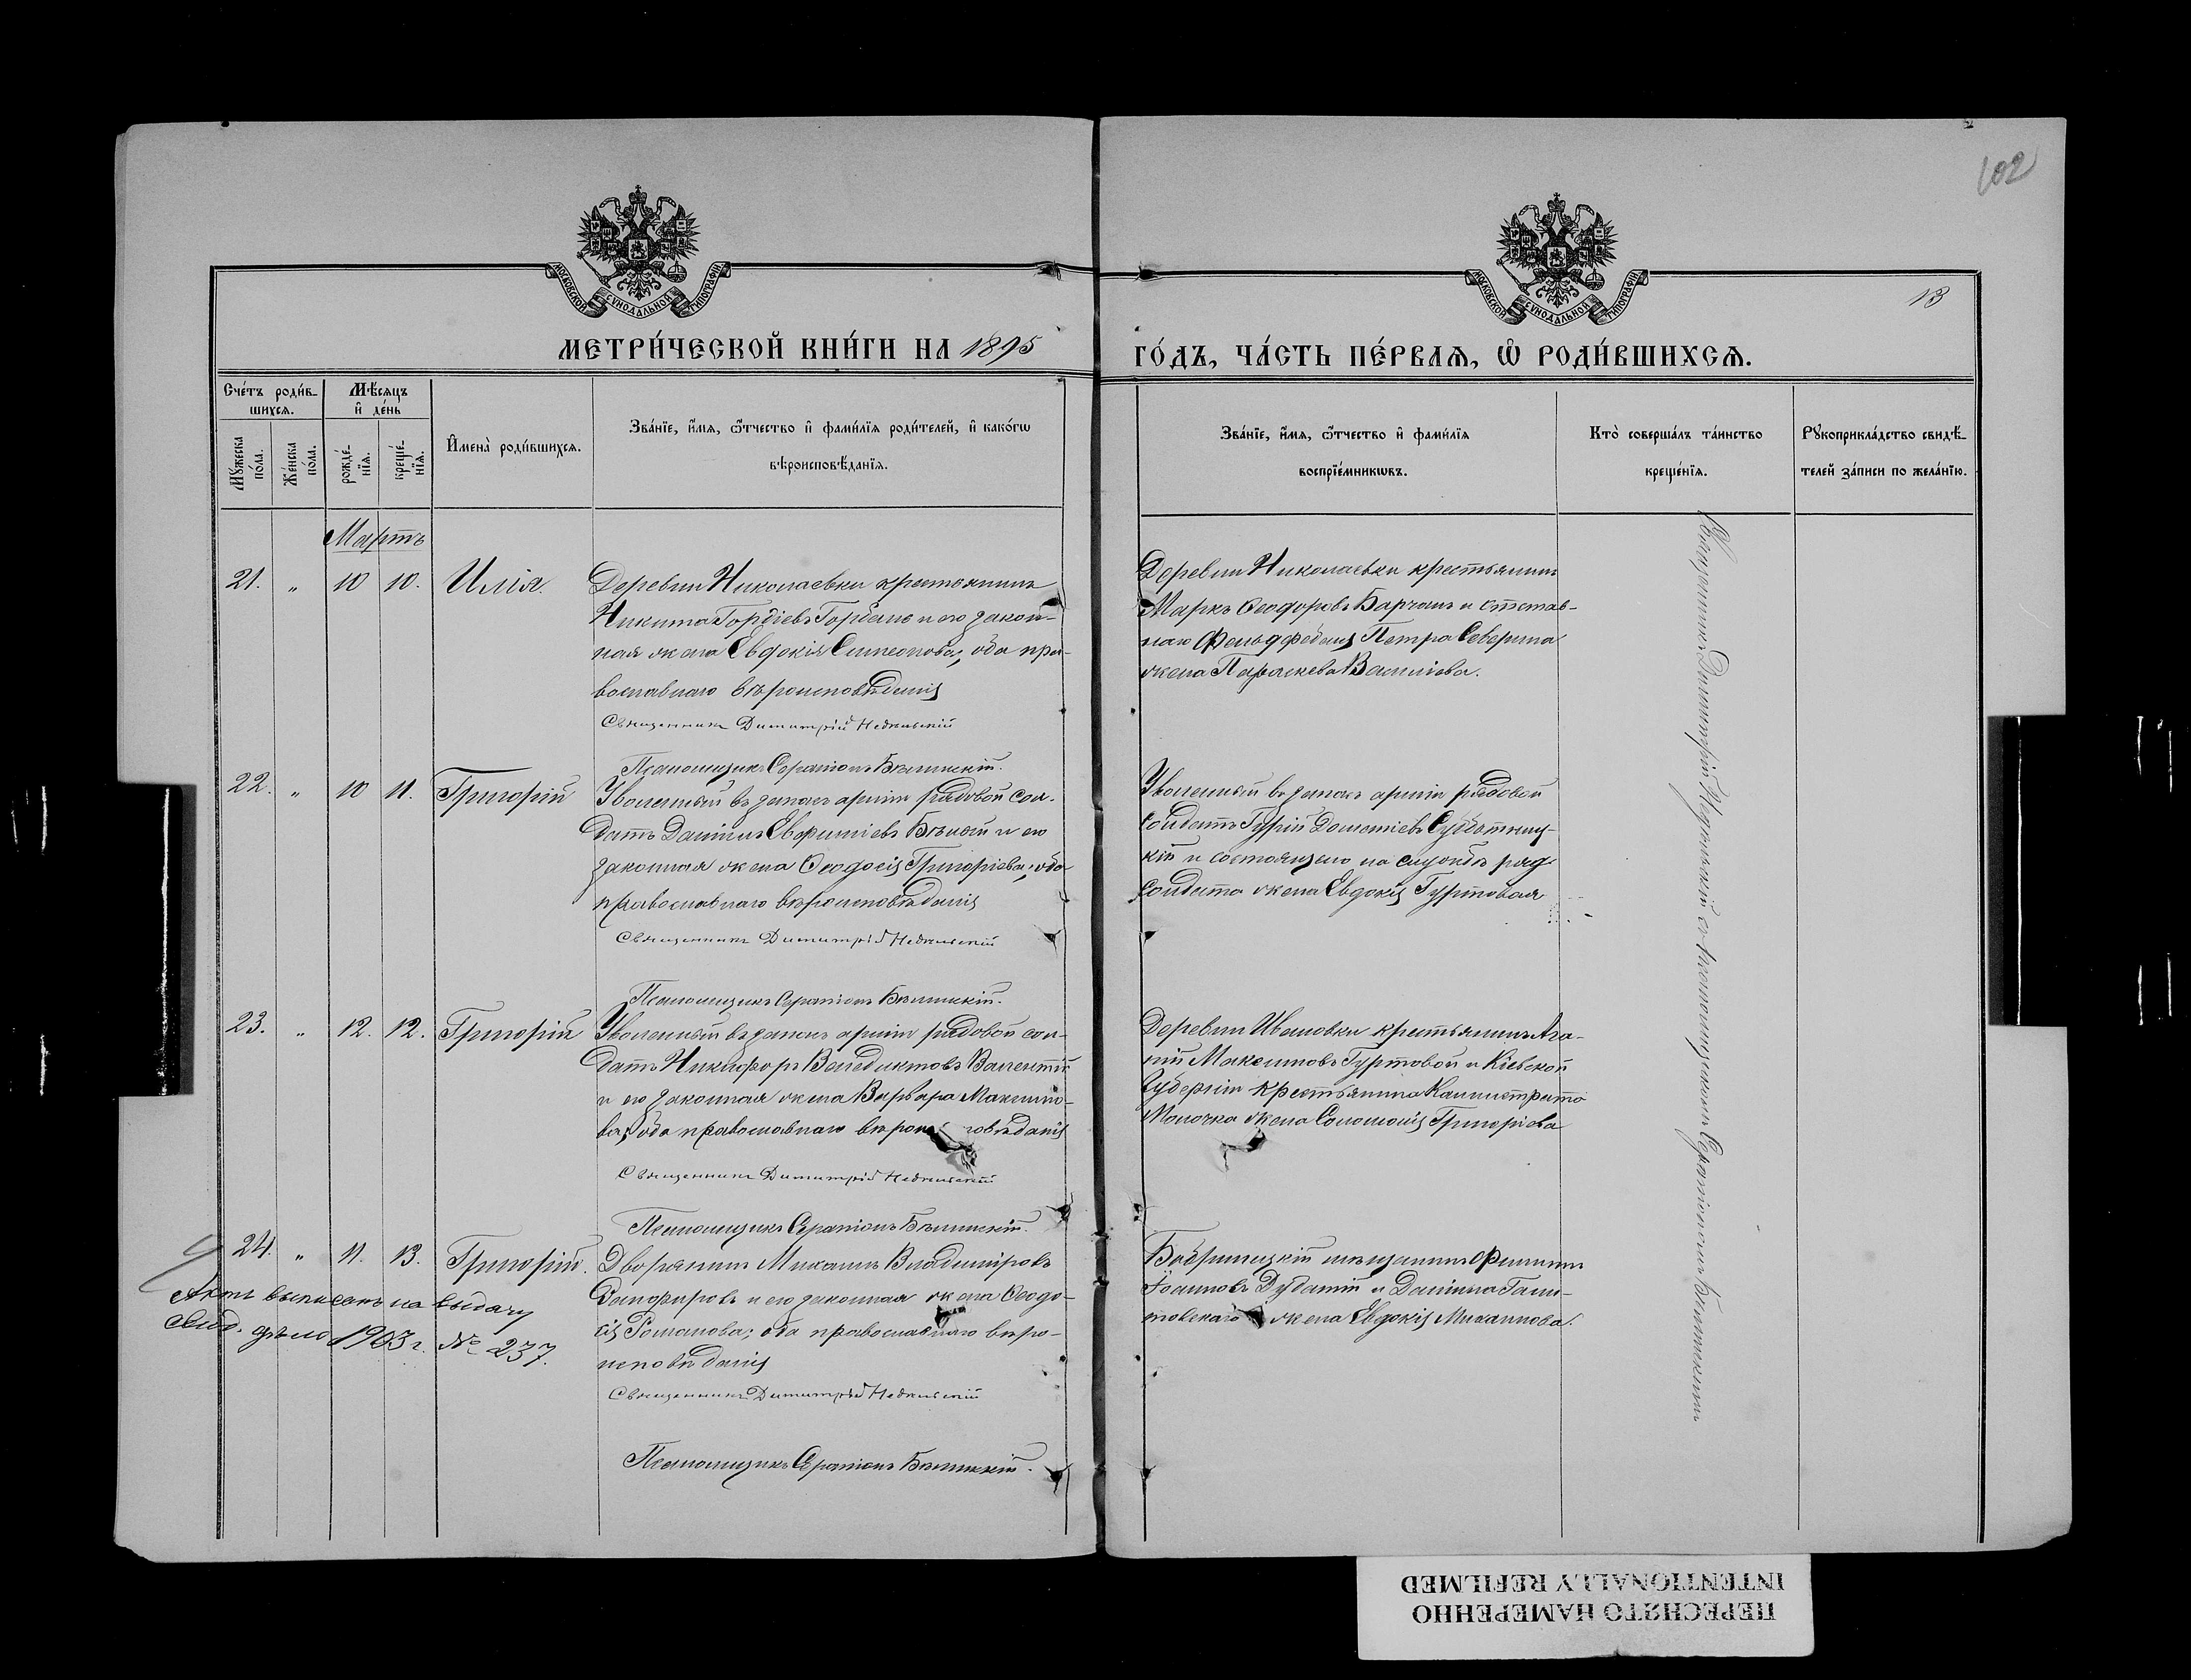 102
13
МОСКОВСКОЙ СУНОДАЛЬНОЙ ТИПОГРАФІИ
МОСКОВСКОЙ СУНОДАЛЬНОЙ ТИПОГРАФІИ
МЕТРИ́ЧЕСКОЙ КНИ́ГИ НА 1895
ГО́ДЪ, ЧА́СТЬ ПЕ́РВАѦ, Ѽ РОДИ́ВШИХСѦ.
Сче́тъ роди́в-
шихсѧ.
Мꙋжеска
по́ла.
Же́нска
по́ла.
Мѣ́сѧцъ
и҆ де́нь
рожде́-
нїѧ.
креще́-
нїѧ.
И҆мена̀ роди́вшихсѧ.
Зва́нїе, и҆́мѧ, ѻ҆́тчество и҆ фами́лїѧ роди́телей, и҆ како́гѡ
вѣроисповѣ́данїѧ.
Зва́нїе, и҆́мѧ, ѻ҆́тчество и҆ фами́лїѧ
воспрїе́мникѡвъ.
Кто̀ соверша́лъ та́инство
креще́нїѧ.
Рꙋкоприкла́дство свидѣ́-
телей за́писи по жела́нїю.
Мартъ
21. „ 10 10. Илія.
Деревни Николаевки крестьянинъ
Никита Гордіевъ Горбань и его закон-
ная жена Евдокія Симеонова, оба пра-
вославнаго вѣроисповѣданія
Священникъ Димитрій Недѣльскій
Псаломщикъ Серапіонъ Бѣлинскій.
Деревни Николаевки крестьянинъ
Маркъ Ѳеодоровъ Барчанъ и отстав-
наго Фельдфебеля Петра Северина
жена Параскева Василіева.
22. „ 10 11. Григорій
Уволенный въ запасъ арміи рядовой сол-
датъ Даніилъ Евфиміевъ Бѣлый и его
законная жена Ѳеодосія Григоріева, оба
православнаго вѣроисповѣданія
Священникъ Димитрій Недѣльскій
Псаломщикъ Серапіонъ Бѣлинскій.
Уволенный въ запасъ арміи рядовой
солдатъ Гурій Дометіевъ Субботниц-
кій и состоящаго на службѣ ряд.
солдата жена Евдокія Гуртовая
23. „ 12. 12. Григорій
Уволенный въ запасъ арміи рядовой сол-
датъ Никифоръ Венедиктовъ
и его законная жена Варвара Максимо-
ва, оба православнаго вѣроисповѣданія
Священникъ Димитрій Недѣльскій
Псаломщикъ Серапіонъ Бѣлинскій.
Деревни Ивановки крестьянинъ Ага-
пій Максимовъ Гуртовой и Кіевской
Губерніи крестьянина Каллистрата
Молочка жена Соломонія Григоріева
24. „ 11. 13. Григорій.
Дворянинъ Михаилъ Владиміровъ
и его законная жена Ѳеодо-
сія Романова; оба православнаго вѣро-
исповѣданія
Священникъ Димитрій Недѣльскій
Псаломщикъ Серапіонъ Бѣлинскій.
Бобринецкій мѣщанинъ Филиппъ
Іоанновъ и Даніила
жена Евдокія Михаилова.
Актъ выписанъ на выдачу
свид. дѣло 1903 г. № 237.
Священникъ Димитрій Недѣльскій съ псаломщикомъ Серапіономъ Бѣлинскимъ
ПЕРЕСНЯТО НАМЕРЕННО
INTENTIONALLY REFILMED